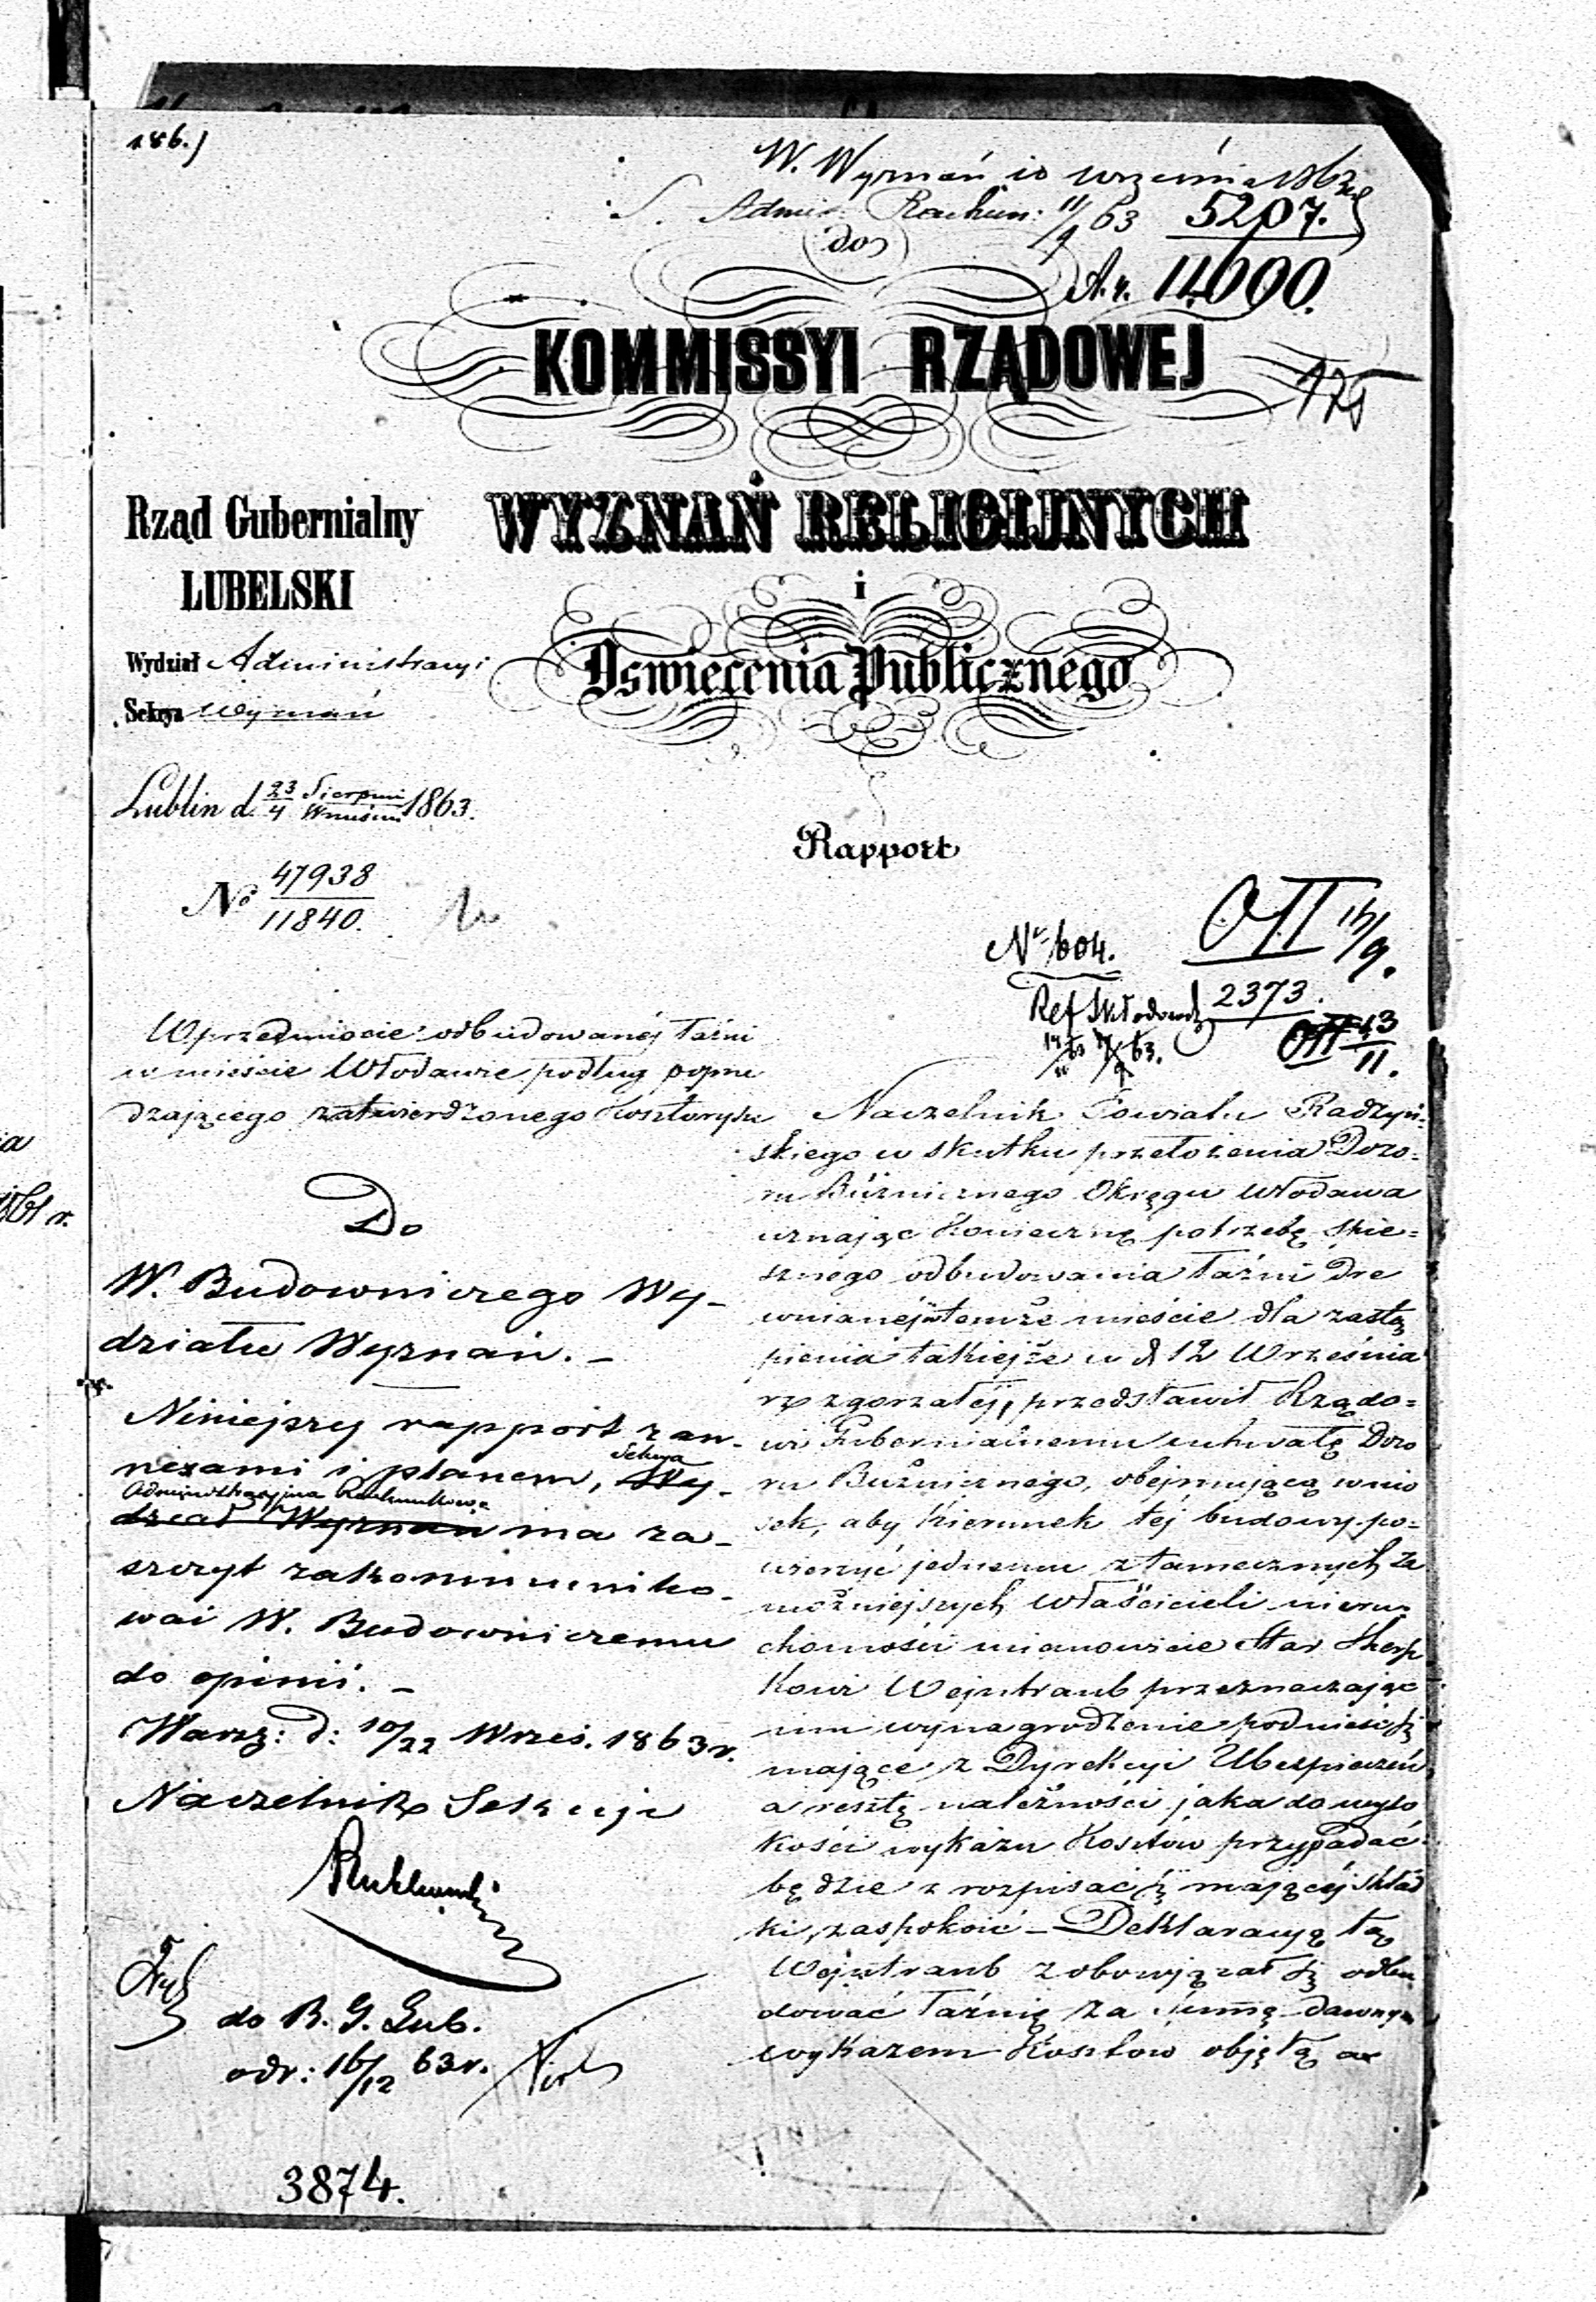 186.)
W. Wyznań 10 września 1863
S. Admin. Rachun: 11/9 63 5207.
do
A. r. 11000.
KOMMISSYI RZĄDOWEJ
125
Rząd Gubernialny
LUBELSKI
WYZNAŃ RELIGIJNYCH
i
Oswiecenia Publicznego
Wydział Administracyi
Sekcya Wyznań
Lublin d. 23/4 Sierpni/Wrześni 1863.
Rapport
No 47938/11840.
No 604.
15/9.
Ref Skłodowski 2373.
13/11.
W przedmiocie odbudowanéj łaźni
w mieście Włodawie podług poprze
dzającego zatwierdzonego Kosztorysu
Do
W. Budowniczego Wy-
działu Wyznań. -
Niniejszy rapport z an-
nexami i planem, Sekcya Wy-
Administracyjna Rachunkowa
dział Wyznań ma za-
szczyt zakommuniko-
wać W. Budowniczemu
do opinii. -
Warsz: d: 10/22 Wrześ. 1863 r.
Naczelnik Sekcyi
do R. G. Lub.
odr: 16/12 63 r.
3874.
Naczelnik Powiatu Radzyń-
skiego w skutku przełożenia Dozo=
ru Bóżniczego Okręgu Włodawa
uznając Konieczną potrzebę śpie=
sznego odbudowania łaźni dre
wnianéj w temże mieście dla zastą
pienia takiejże w d 12 Września
r z zgorzałéj, przedstawił Rządo=
wi Gubernialnemu uchwałę Dozo
ru Bużniczego, obejmującą wnio
sek, aby kierunek téj budowy po=
wierzyć jednemu z tamecznych za
możniejszych właścicieli nieru=
chomości mianowicie
kowi Wejntraub przeznaczając
mu wynagrodzenie podnieść się
mające z Dyrekcyi Ubezpieczeń
a resztę należności jaka do wyso
kości wykazu Kosztów przypadać
będzie z rozpisać się mającéj skład
ki, zaspokoić - Deklaracyą tą
Wejntraub zobowiązał się odbu
dować łaźnię za summę dawnym
wykazem Kosztów objętą
ia
1861 r.